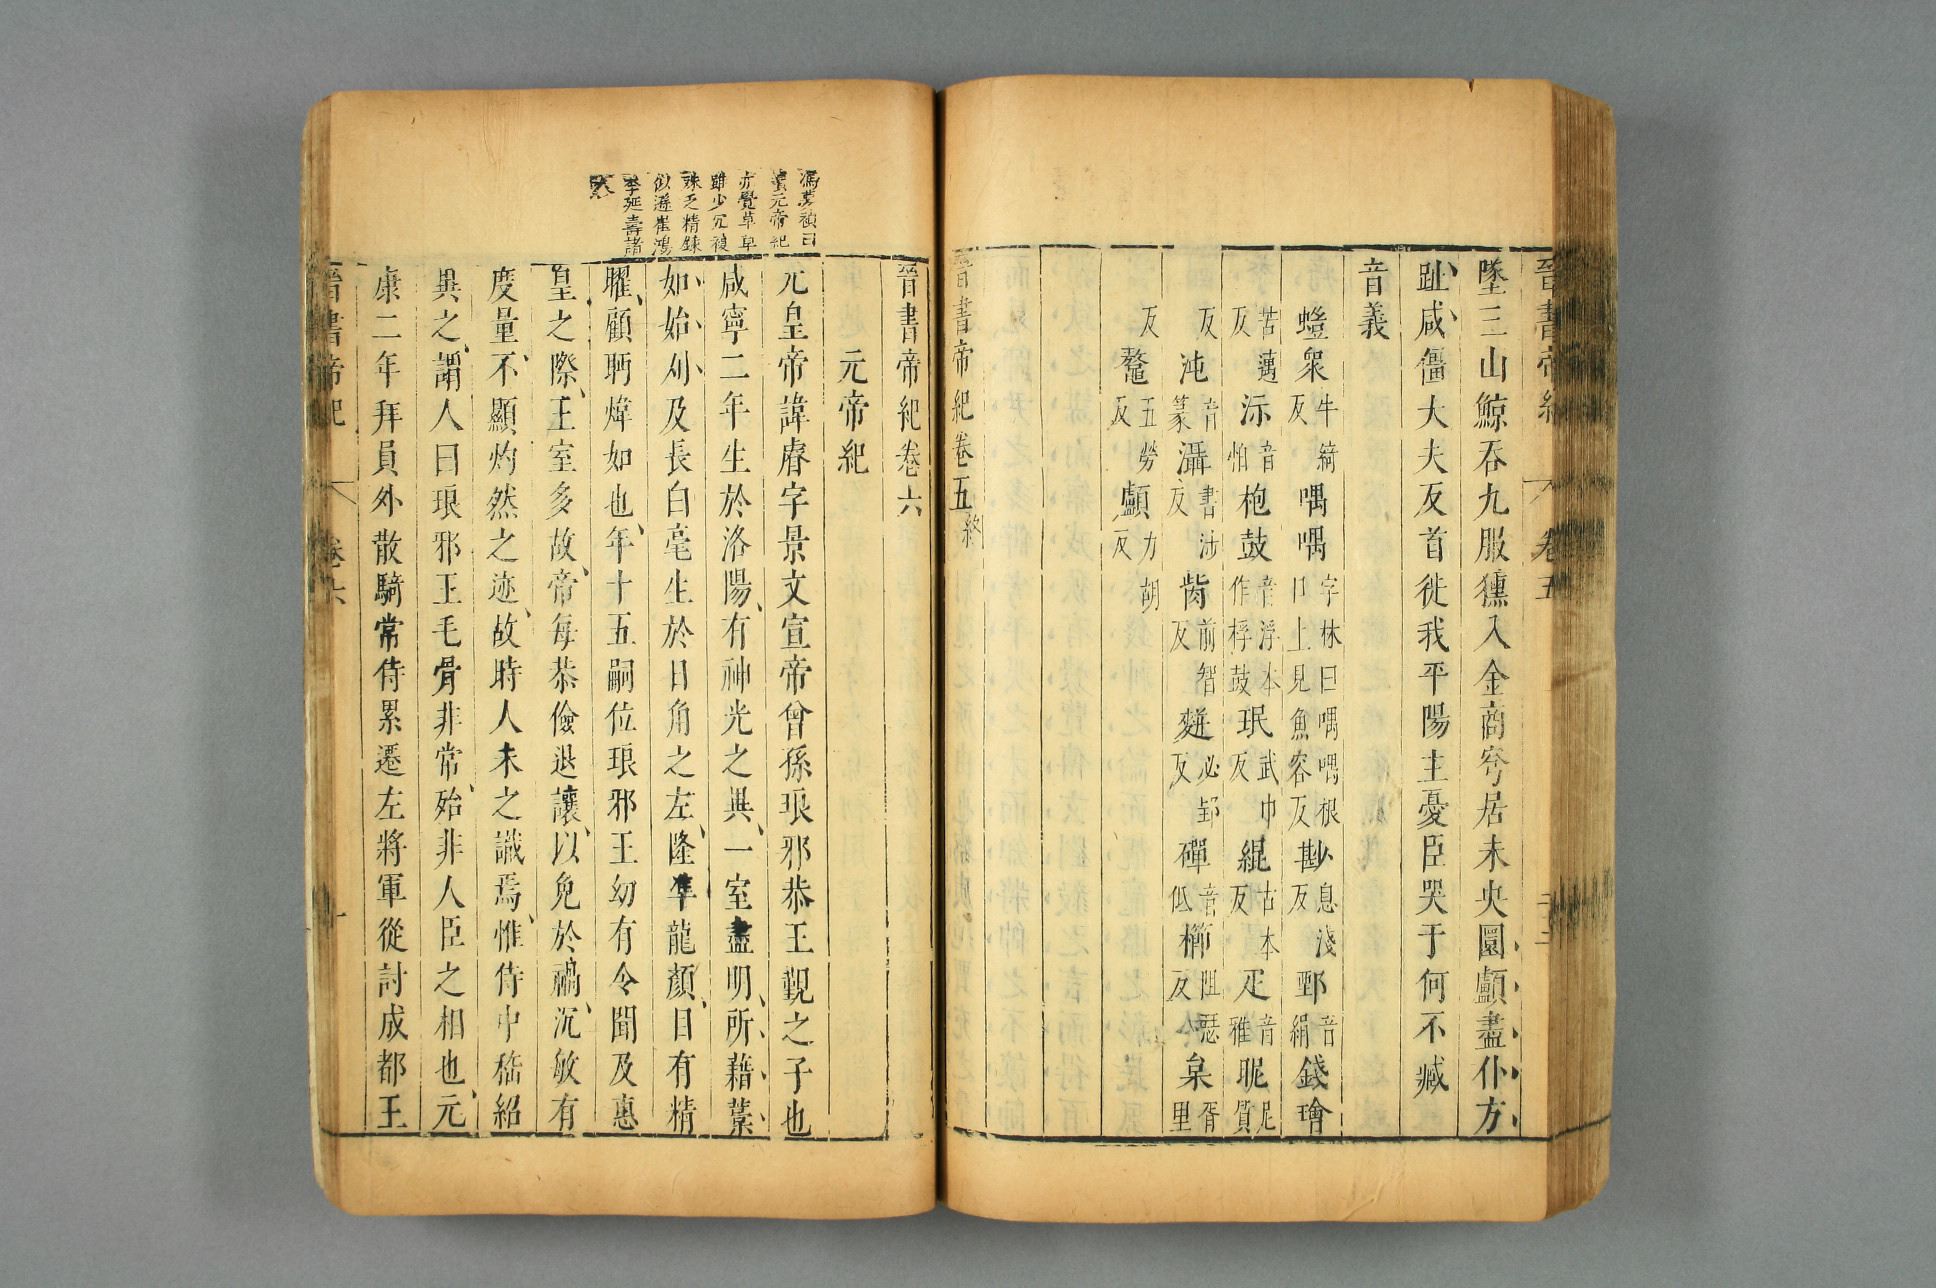 晉書帝紀 卷五
墜三山鯨吞九服獯入金商穹居未央圜顱盡仆方
趾咸僵大夫反首徙我平陽主憂臣哭于何不臧
音義
螘衆牛綺反喁喁字林曰喁喁口上見魚容反尠息淺反鄄音絹錢璯
苦邁反沶音怕枹鼓音浮本作桴鼓珉武巾反緄古本反疋音雅昵尼質
反沌音篆灄書涉反胔前智反麰必郢反磾音低櫛阻瑟反枲胥里
反鼇五勞反顱力胡反
晉書帝紀卷五終
晉書帝紀卷六
元帝紀
元皇帝諱睿字景文宣帝曾孫琅邪恭王覲之子也
咸寧二年生於洛陽有神光之異一室盡明所藉藁
如始刈及長白毫生於日角之左隆準龍顏目有精
曜顧眄煒如也年十五嗣位琅邪王幼有令聞及惠
皇之際王室多故帝每恭儉退讓以免於禍沉敏有
度量不顯灼然之迹故時人未之識焉惟侍中嵇紹
異之謂人曰琅邪王毛骨非常殆非人臣之相也元
康二年拜員外散騎常侍累遷左將軍從討成都王
晉書帝紀 卷六 一
馮夢禎曰
元帝紀
亦覺草草
雖少冗複
殊乏精鍊
似遜崔鴻
李延壽諸